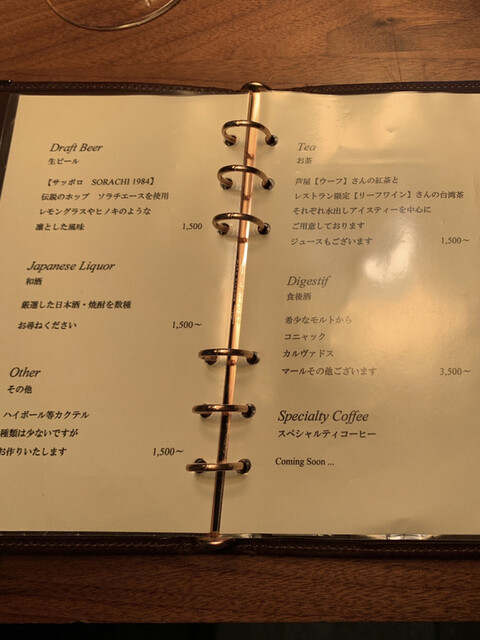 Draft Beer
生ビール
【サッポロ SORACHI 1984】
伝説のホップ ソラチエースを使用
レモングラスやヒノキのような
凛とした風味 1,500
Japanese Liquor
和酒
厳選した日本酒・焼酎を数種
お尋ねください 1,500～
Other
その他
ハイボール等カクテル
種類は少ないですが
お作りいたします 1,500～
Tea
お茶
芦屋【ウーフ】さんの紅茶と
レストラン限定【リーフワイン】さんの台湾茶
それぞれ水出しアイスティーを中心に
ご用意しております
ジュースもございます 1,500～
Digestif
食後酒
希少なモルトから
コニャック
カルヴァドス
マールその他ございます 3,500～
Specialty Coffee
スペシャルティコーヒー
Coming Soon ...